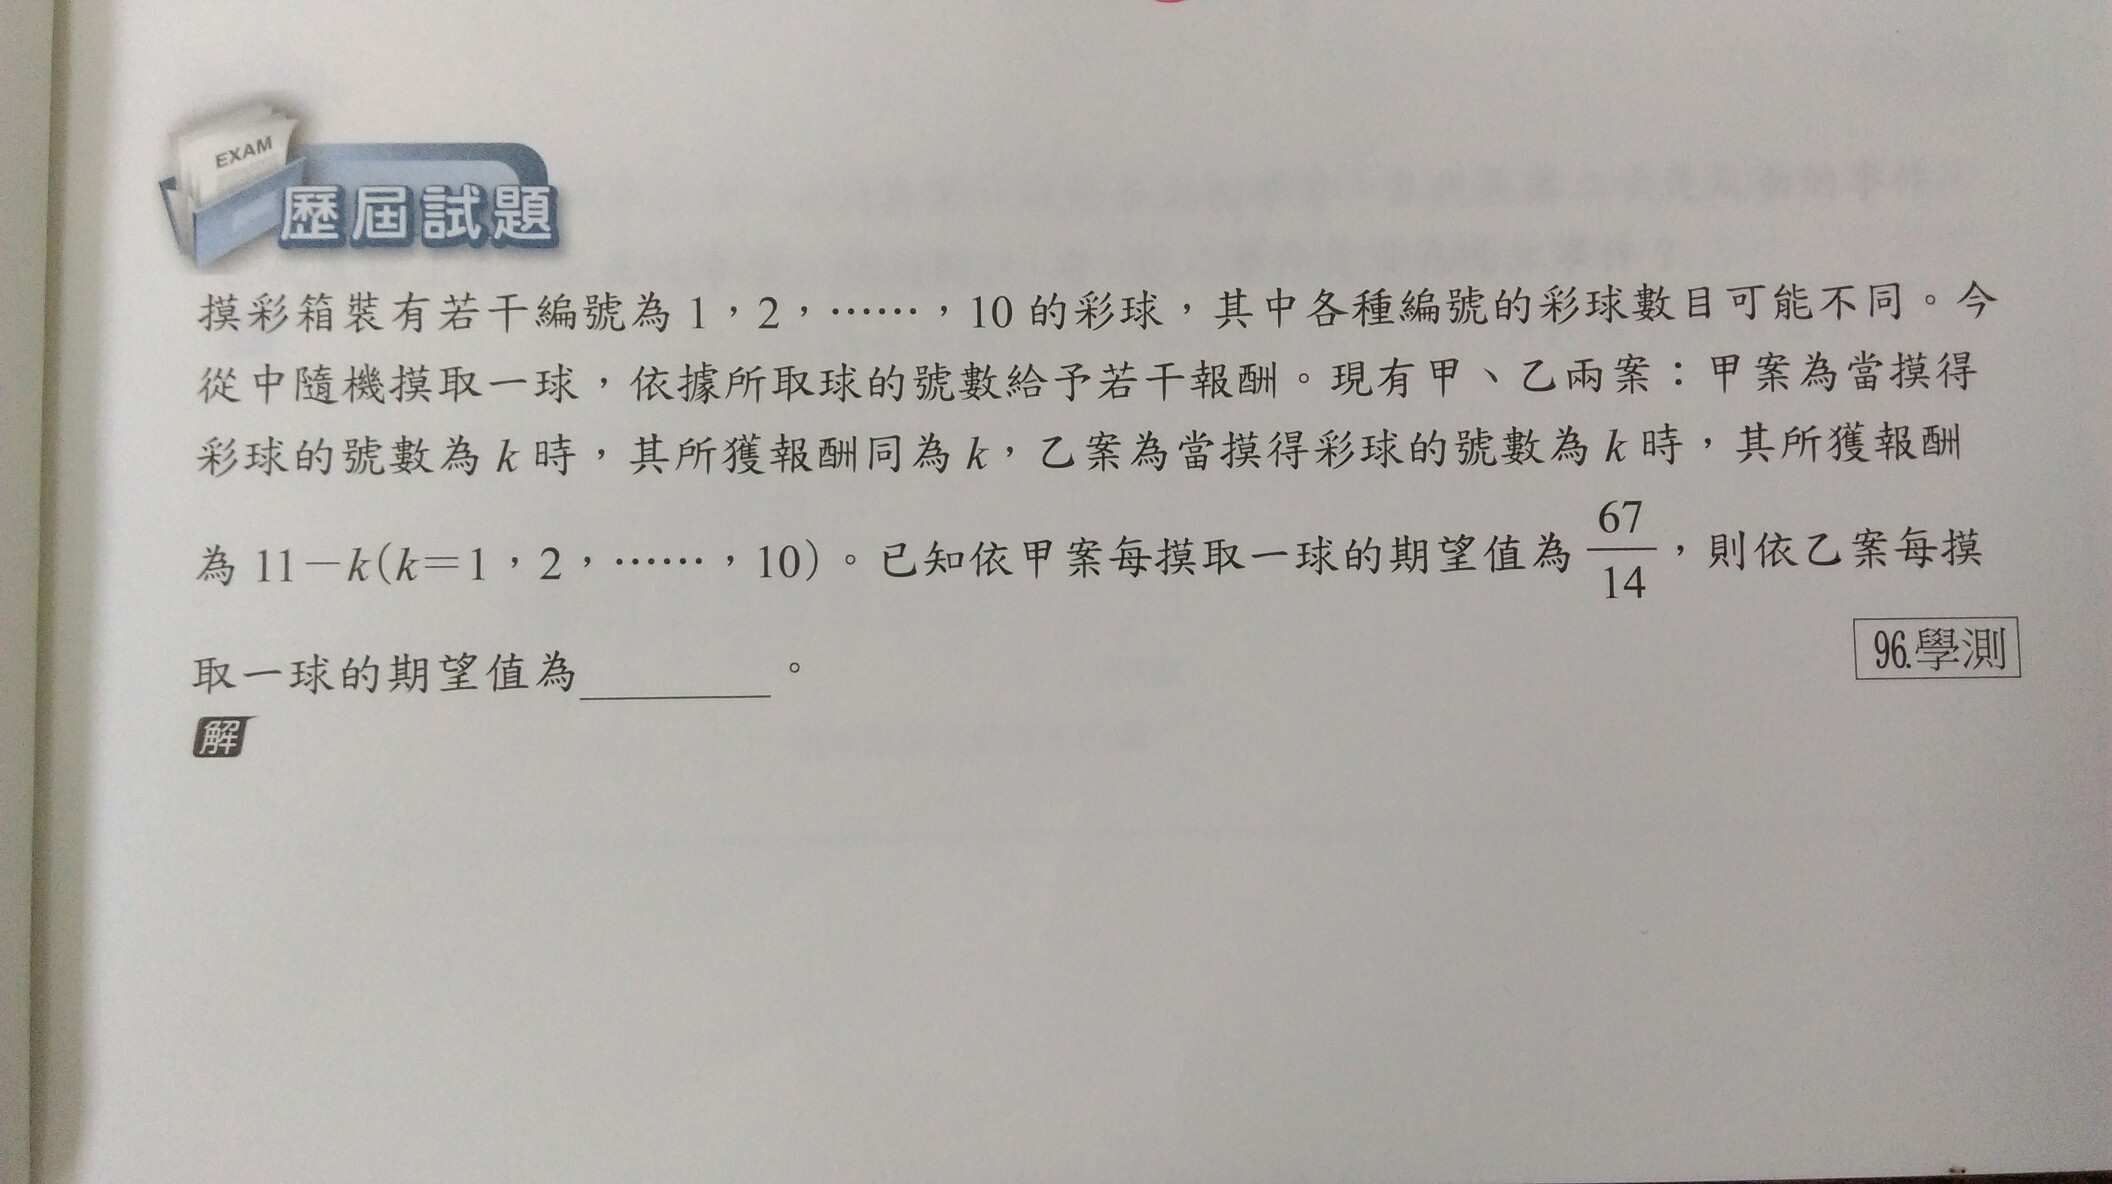 EXAM
歷屆試題
摸彩箱裝有若干編號為 1,2,……,10 的彩球,其中各種編號的彩球數目可能不同。今
從中隨機摸取一球,依據所取球的號數給予若干報酬。現有甲、乙兩案:甲案為當摸得
彩球的號數為 k 時,其所獲報酬同為 k,乙案為當摸得彩球的號數為 k 時,其所獲報酬
為 11-k(k=1,2,……,10)。已知依甲案每摸取一球的期望值為 67/14,則依乙案每摸
取一球的期望值為________。
96.學測
解